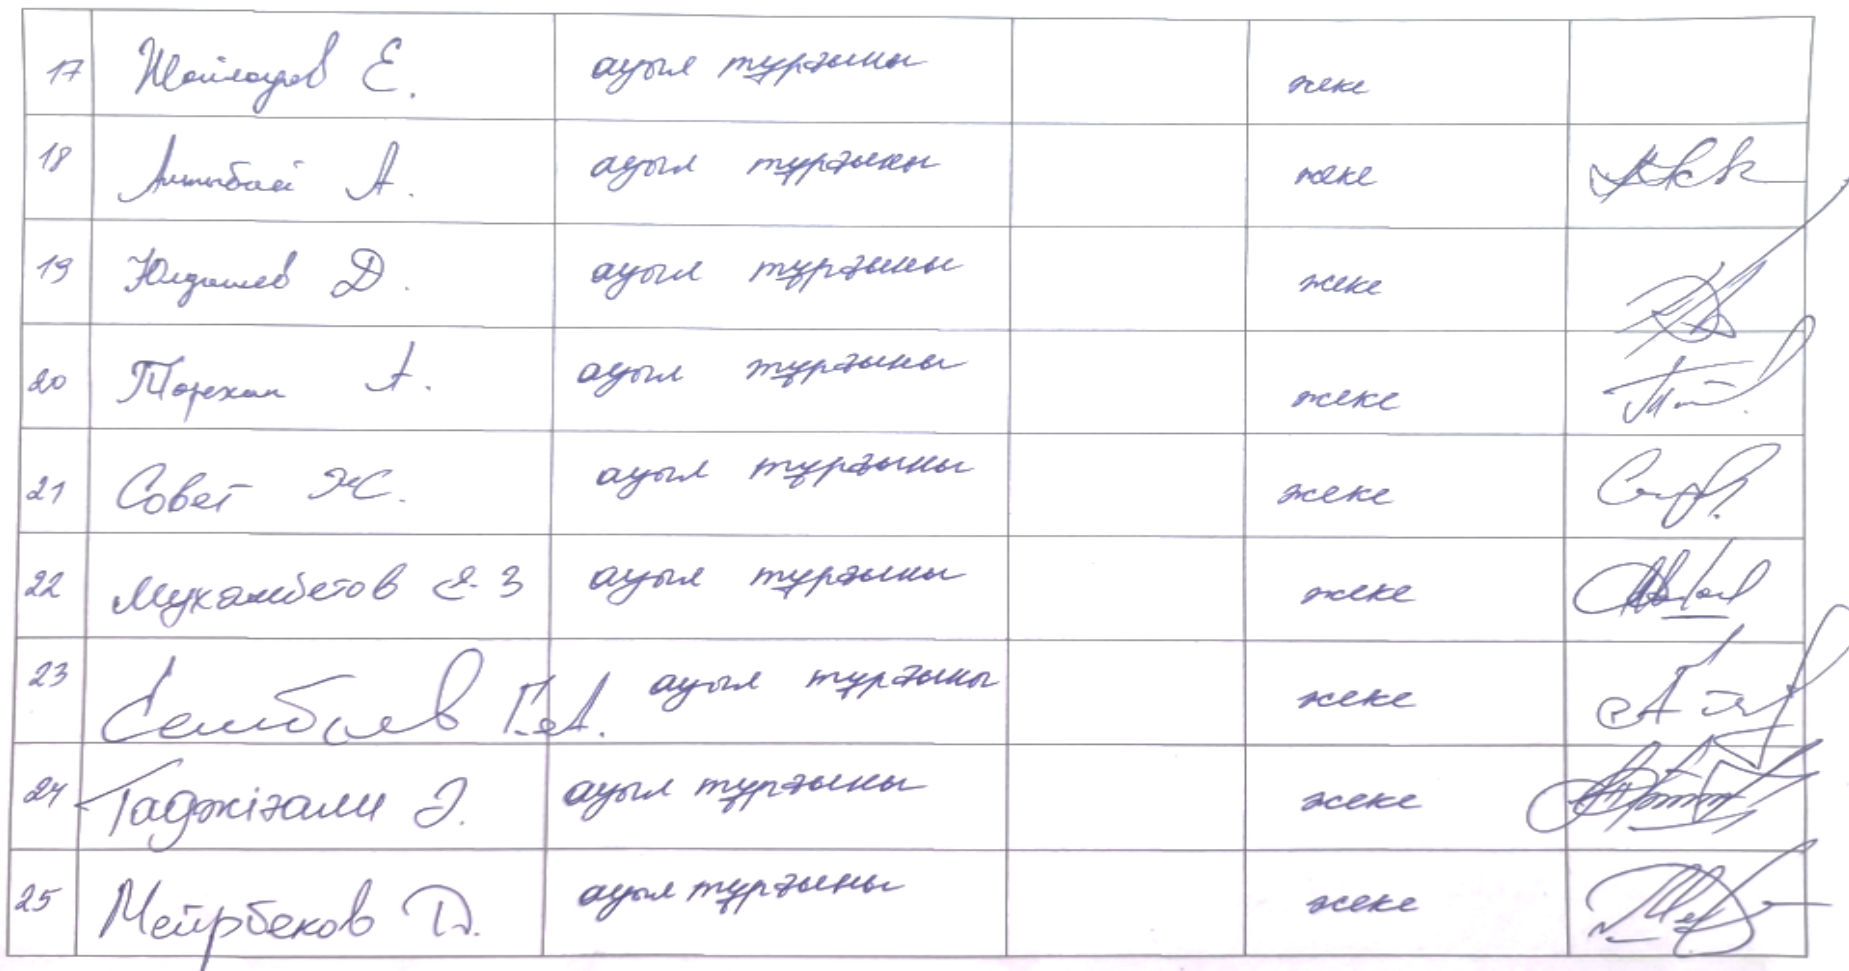 17 Шайлаудов Е. ауыл тұрғыны жеке
18 Ашыбай А. ауыл тұрғыны жеке
19 Юлдашев Д. ауыл тұрғыны жеке
20 Төрехан А. ауыл тұрғыны жеке
21 Совет Ж. ауыл тұрғыны жеке
22 Мукамбетов Е.З ауыл тұрғыны жеке
23 Сембаев Г.А. ауыл тұрғыны жеке
24 Таджіғали Ә. ауыл тұрғыны жеке
25 Мейрбеков Д. ауыл тұрғыны жеке